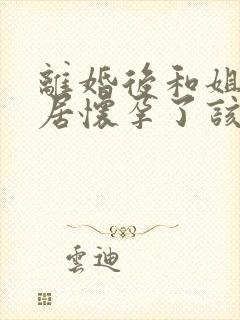 離婚後和姐
居懷孕了該
雲迪